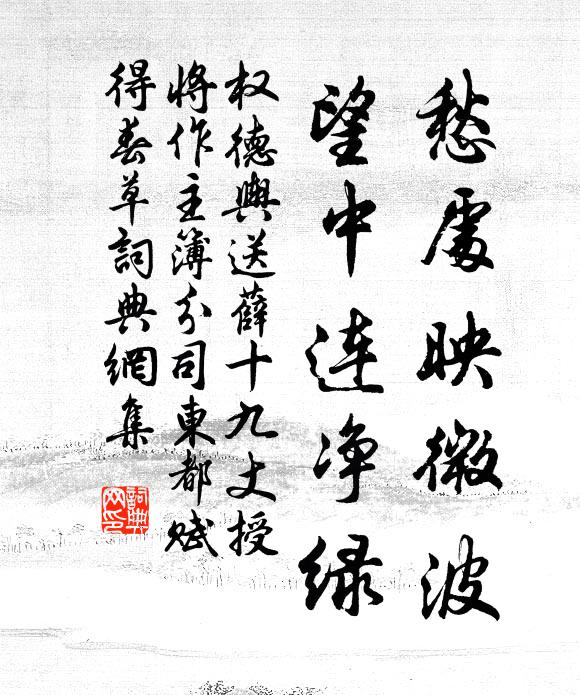 愁處映微波
望中连净绿
权德舆送薛十九丈授
将作主簿分司東都赋
得春草詞典網集
詞典網印